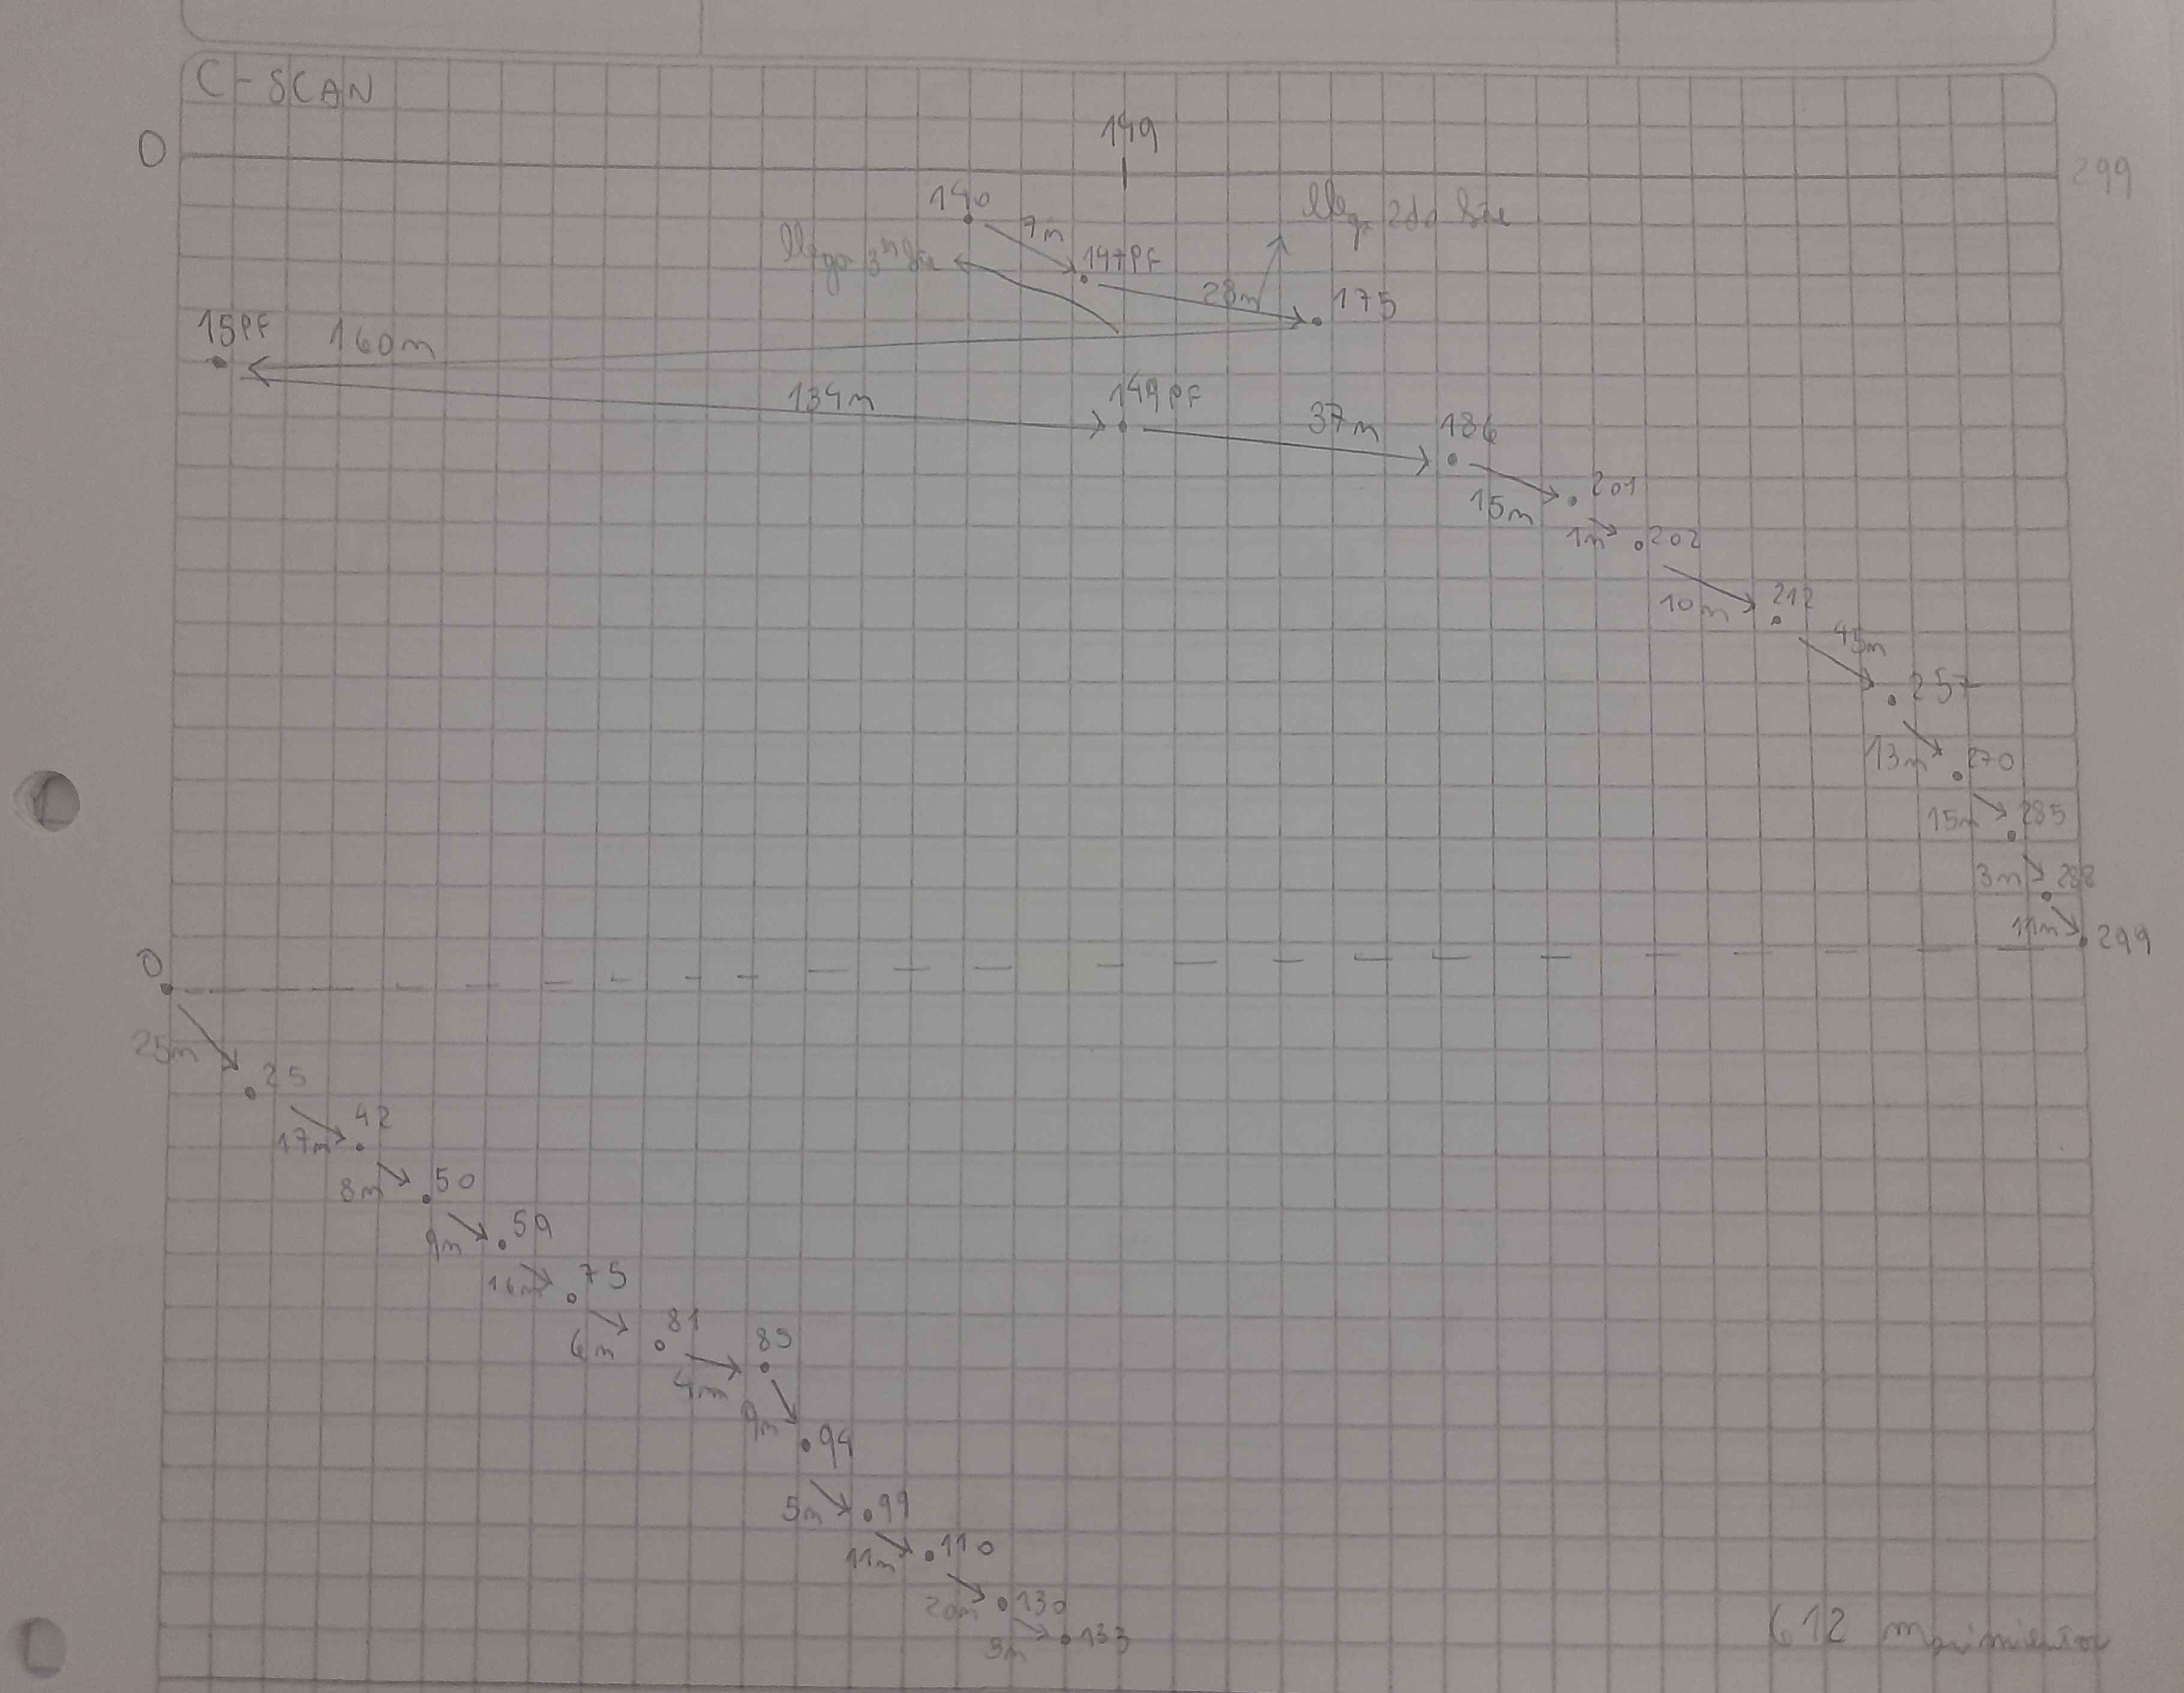 C-SCAN
149
0
299
140
7m
147PF
28m
175
15PF
160m
134m
149PF
37m
186
15m
201
1m
202
10m
212
45m
257
13m
270
15m
285
3m
288
11m
299
0
25m
25
17m
42
8m
50
9m
59
16m
75
6m
81
4m
85
9m
94
5m
99
11m
110
20m
130
3m
133
612